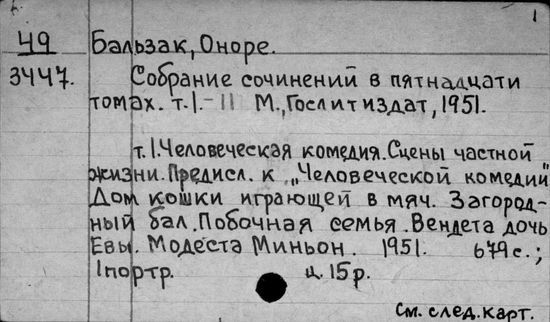 1
49 Бальзак, Оноре.
3447. Собрание сочинений в пятнадцати
томах. т.1.-11 М., Гослитиздат, 1951.
т.1. Человеческая комедия. Сцены частной
жизни. Предисл. к „Человеческой комедии"
Дом кошки играющей в мяч. Загород-
ный бал. Побочная семья. Вендета дочь
Евы. Модеста Миньон. 1951. 679 с.;
1 портр. ц. 15 р.
См. след. карт.